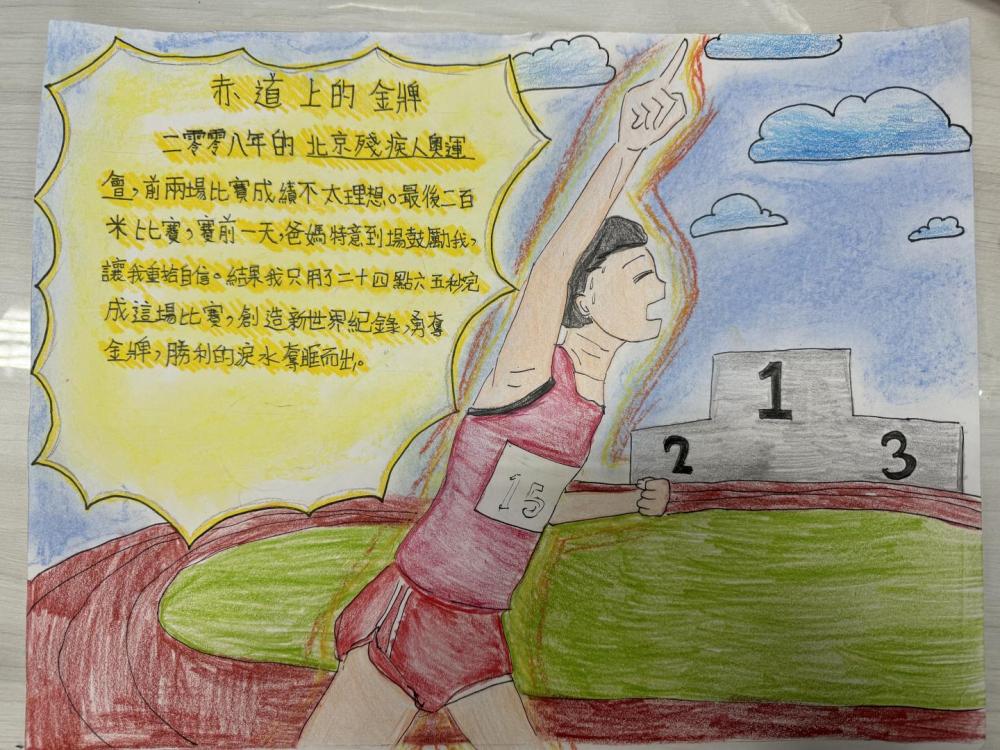 赤道上的金牌
二零零八年的北京殘疾人奧運
會，前兩場比賽成績不太理想。最後二百
米比賽，賽前一天，爸媽特意到場鼓勵我，
讓我重拾自信。結果我只用了二十四點六五秒完
成這場比賽，創造新世界紀錄，勇奪
金牌，勝利的淚水奪眶而出。
1
2
3
15